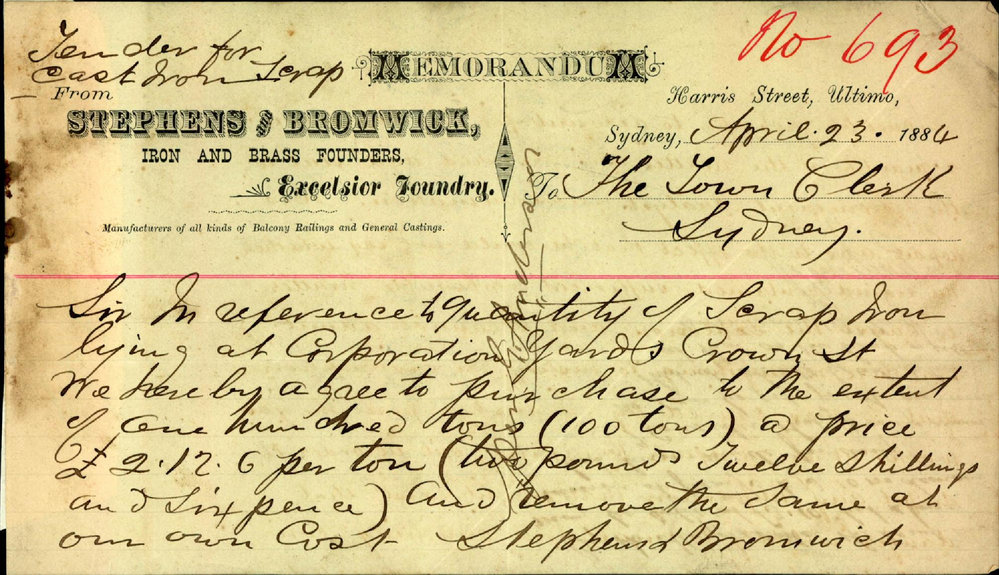 Tender for
Cast Iron Scrap
No 693
MEMORANDUM
From
STEPHENS AND BROMWICK,
IRON AND BRASS FOUNDERS,
Excelsior Foundry.
Manufacturers of all kinds of Balcony Railings and General Castings.
Harris Street, Ultimo,
Sydney, April. 23. 1884
To The Town Clerk
Sydney.
Sir In reference to quantity of Scrap Iron
lying at Corporation Yards Crown St
We hereby agree to purchase to the extent
of One hundred tons (100 tons) @ price
£2.12.6 per ton (two pounds Twelve Shillings
and Sixpence) And remove the Same at
our own Cost Stephens & Bromwich